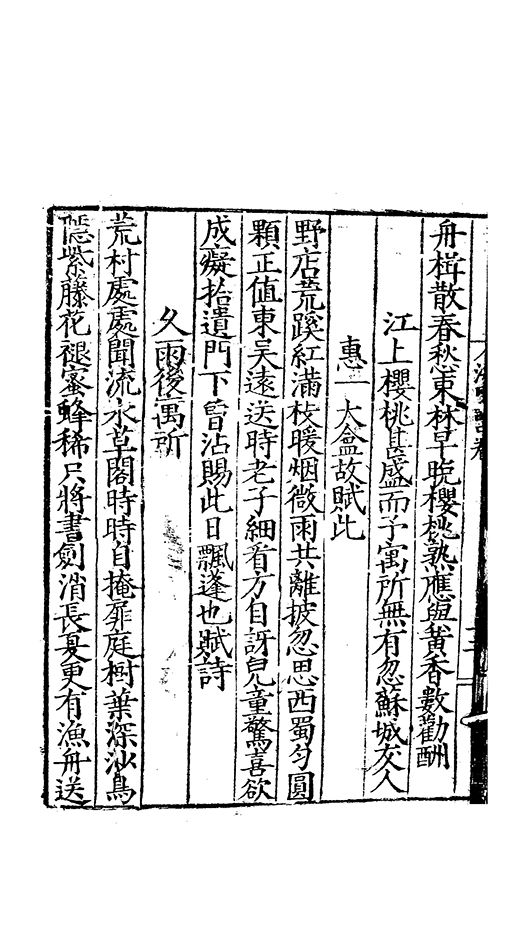 舟楫散春愁東林早晚櫻桃熟應與黃香數勸酬
江上櫻桃甚盛而予寓所無有忽蘇城友人
惠一大盒故賦此
野店荒蹊紅滿枝暖烟微雨共離披忽思西蜀勻圓
顆正值東吳遠送時老子細看方自訝兒童驚喜欲
成癡拾遺門下曾沾賜此日飄蓬也賦詩
久雨後寓所
荒村處處聞流水草閣時時自掩扉庭樹葉深沙鳥
隱紫藤花褪蜜蜂稀只將書劍消長夏更有漁舟送